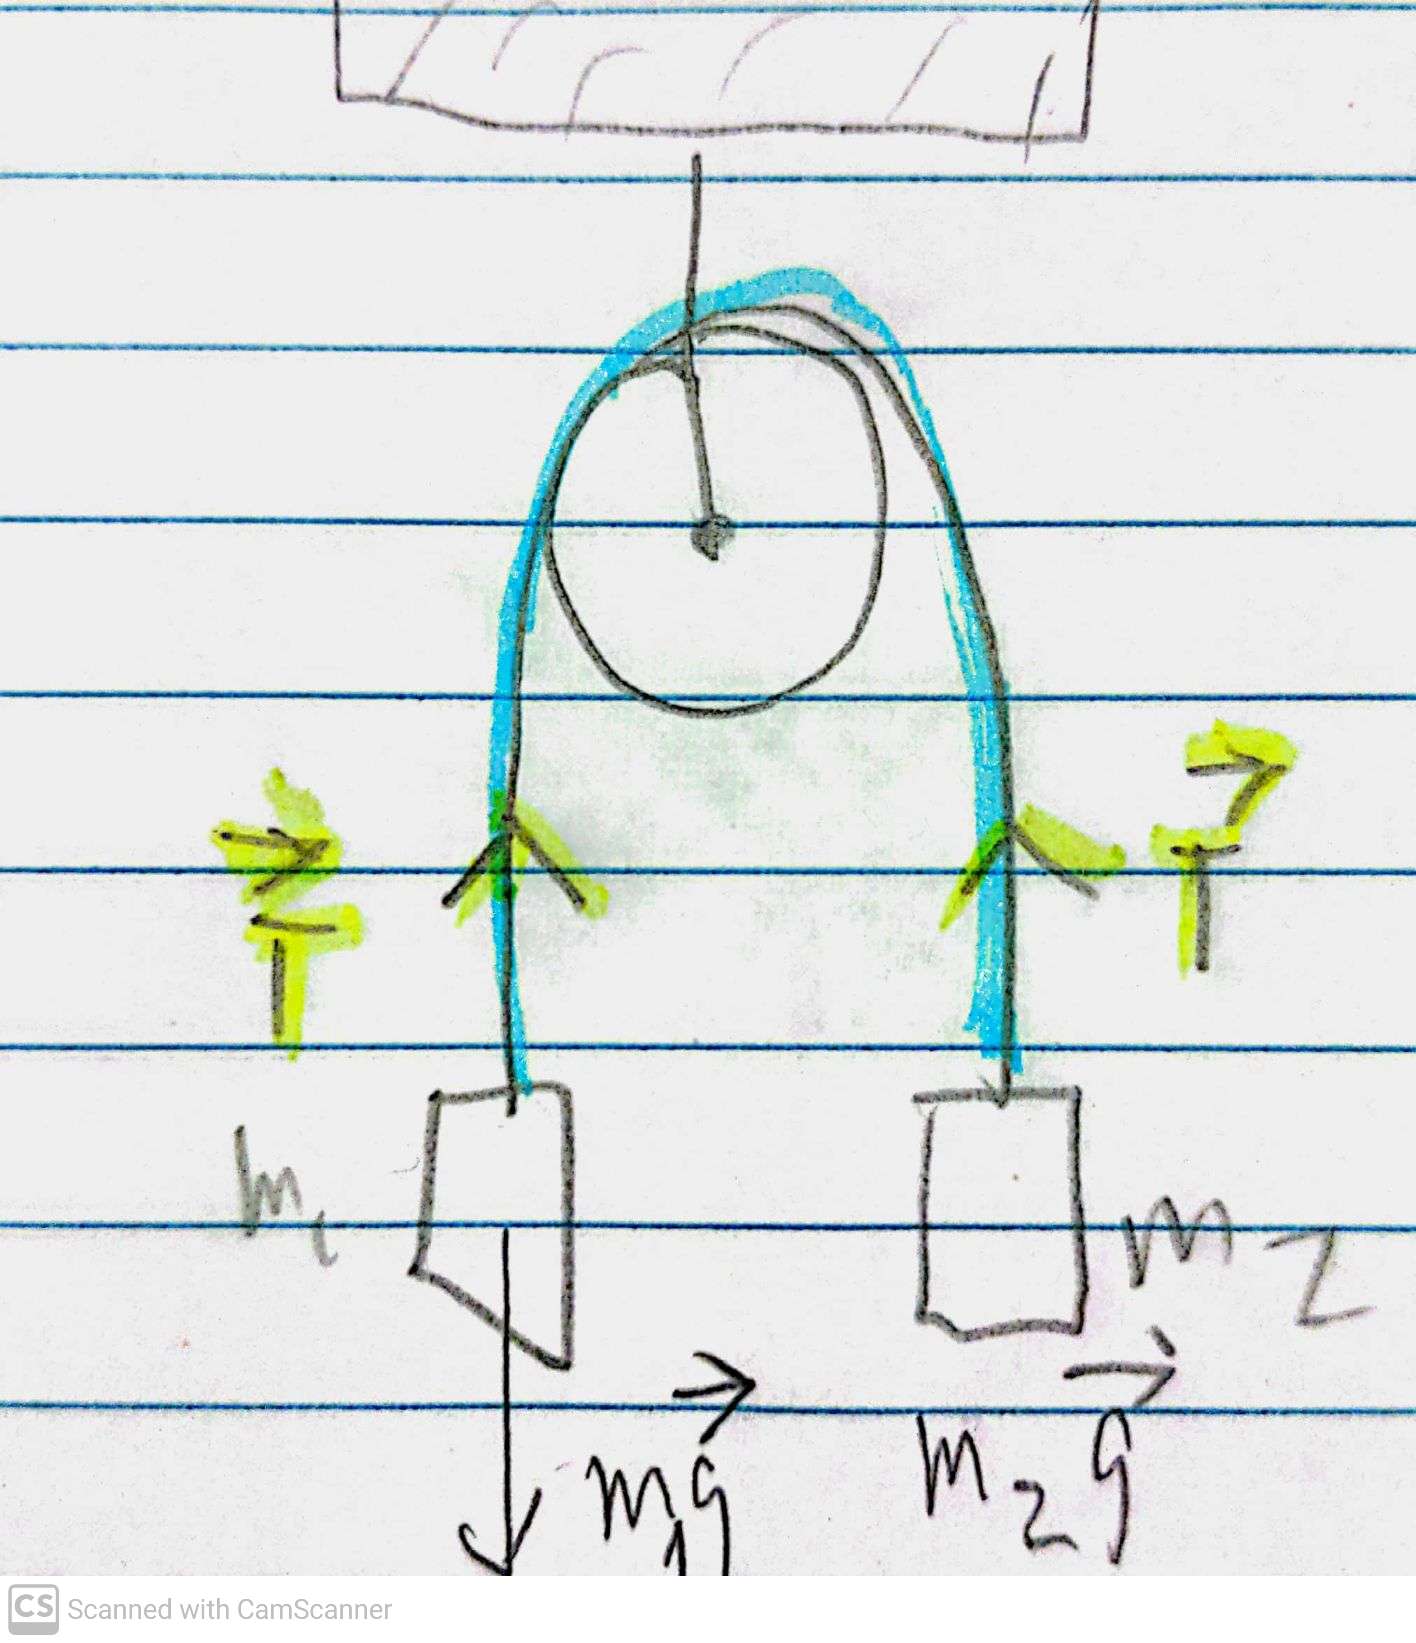 T
T
m1
m2
m1g
m2g
CS Scanned with CamScanner